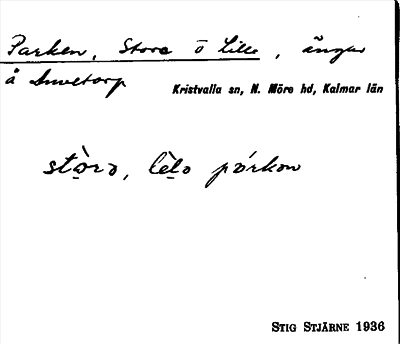 Parken, Stora o Lilla, ängar
å
Kristvalla sn, N. Möre hd, Kalmar län
stòrɔ, lèlɔ pɔ́rkɔn
STIG STJÄRNE 1936